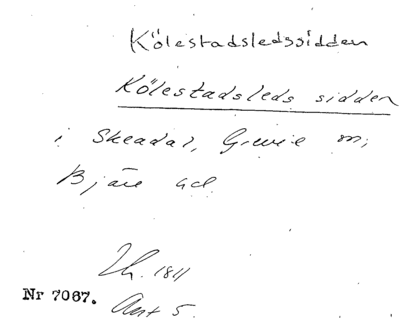 Kölestadsledssidden
Kölestadsleds sidden
i Skeadal, Grevie sn,
Bjäre hd
1811
Nr 7067.
Ant 5.